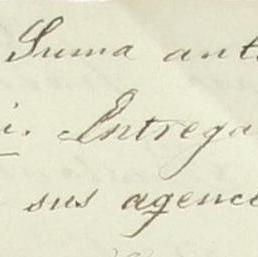 Suma ant
i. Entrega
sus agenci